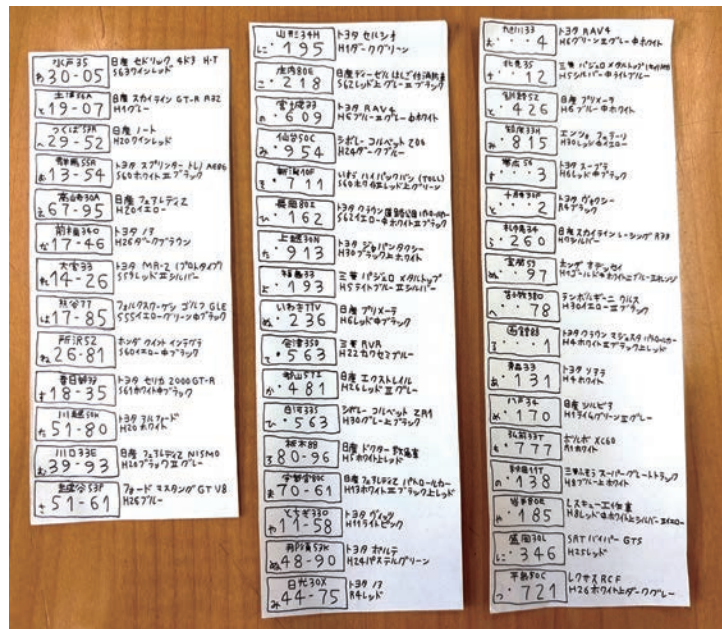 水戸35
わ30-05
日産 セドリック 4ドア H-T
S63ワインレッド
土浦36A
と19-07
日産 スカイライン GT-R R32
H1グレー
つくば53R
へ29-52
日産 ノート
H20ワインレッド
群馬55R
お13-54
トヨタ スプリンター トレノ AE86
S60ホワイトⅡブラック
高崎30A
え67-95
日産 フェアレディZ
H20イエロー
前橋340
な17-46
トヨタ ノア
H26ダークブラウン
大宮33
れ14-26
トヨタ MR-2 (プロトタイプ)
S59レッドⅡシルバー
熊谷77
は17-85
フォルクスワーゲン ゴルフ GLE
S55イエローグリーン中ブラック
所沢52
ね26-81
ホンダ クイント インテグラ
S60イエロー中ブラック
春日部33
す18-35
トヨタ セリカ 2000GT-R
S61ホワイト中ブラック
川越50K
た51-80
トヨタ アルファード
H20ホワイト
川口33E
む39-93
日産 フェアレディZ NISMO
H20ブラックⅡグレー
越谷53P
51-61
フォード マスタング GT V8
H26ブルー
山形34H
に・195
トヨタ セルシオ
H1ダークグリーン
庄内80E
こ・218
日産ディーゼル はしご付消防車
S62レッド上グレーⅡブラック
宮城33
の・609
トヨタ RAV4
H6ブルーⅡグレー中ホワイト
仙台50C
み・954
シボレー コルベット Z06
H24ダークブルー
新潟40F
・711
いすゞ ハイパックバン (TOLL)
S60ホワイトⅡレッド上グリーン
長岡80Z
ひ・162
トヨタ クラウン 道路公団パトロールカー
S62イエロー中ホワイトⅡブラック
上越30N
た・913
トヨタ ジャパンタクシー
H30ブラック上ホワイト
福島33
よ・193
三菱 パジェロ メタルトップ
H5ライトブルーⅡシルバー
いわき77V
ぬ・236
日産 プリメーラ
H6レッド中ブラック
会津350
て・563
三菱 RVR
H22カワセミブルー
郡山57Z
か・481
日産 エクストレイル
H26レッドⅡグレー
白河33S
ひ・563
シボレー コルベット ZR1
H30グレー上ブラック
栃木88
ろ80-96
日産 ドクター 救急車
H5ホワイト上レッド
宇都宮80C
ま70-61
日産 フェアレディZ パトロールカー
H13ホワイトⅡブラック上レッド
とちぎ330
や11-58
トヨタ ヴィッツ
H11ライトピンク
那須53K
ぬ48-90
トヨタ ポルテ
H24パステルグリーン
日光30X
み44-75
トヨタ ノア
R4レッド
旭川33
・・・4
トヨタ RAV4
H6グリーンⅡグレー中ホワイト
北見35
・・12
三菱 パジェロ メタルトップ
H5シルバー中ライトブルー
釧路52
と・426
日産 プリメーラ
H6ブルー中ホワイト
知床33H
む・815
エンツォ フェラーリ
H30レッド中イエロー
帯広56
す・・・3
トヨタ スープラ
H6レッド中ブラック
十勝30P
と・・・2
トヨタ ヴォクシー
R4ブラック
札幌34
ら・260
日産 スカイライン レーシング R33
H7シルバー
室蘭53
ぬ・・97
ホンダ オデッセイ
H7ゴールド中ホワイト上ブルーⅡオレンジ
苫小牧380
へ・・78
ランボルギーニ ウルス
H30イエローⅡブラック
函館88
ろ・・・1
トヨタ クラウン マジェスタ パトロールカー
H4ホワイトⅡブラック上レッド
青森33
あ・131
トヨタ ソアラ
H4ホワイト
八戸34
め・170
日産 シルビア
H1ライムグリーンⅡグレー
弘前33T
も・777
ボルボ XC60
H1ホワイト
秋田11T
の・138
三菱ふそう スーパーグレートトラック
H8ブルー上ホワイト
岩手80E
や・185
レスキュー工作車
H8レッド中ホワイト上シルバーⅡイエロー
盛岡30L
に・346
SRT バイパー GTS
H25レッド
平泉50C
つ・721
レクサス RCF
H26ホワイト上ダークグレー